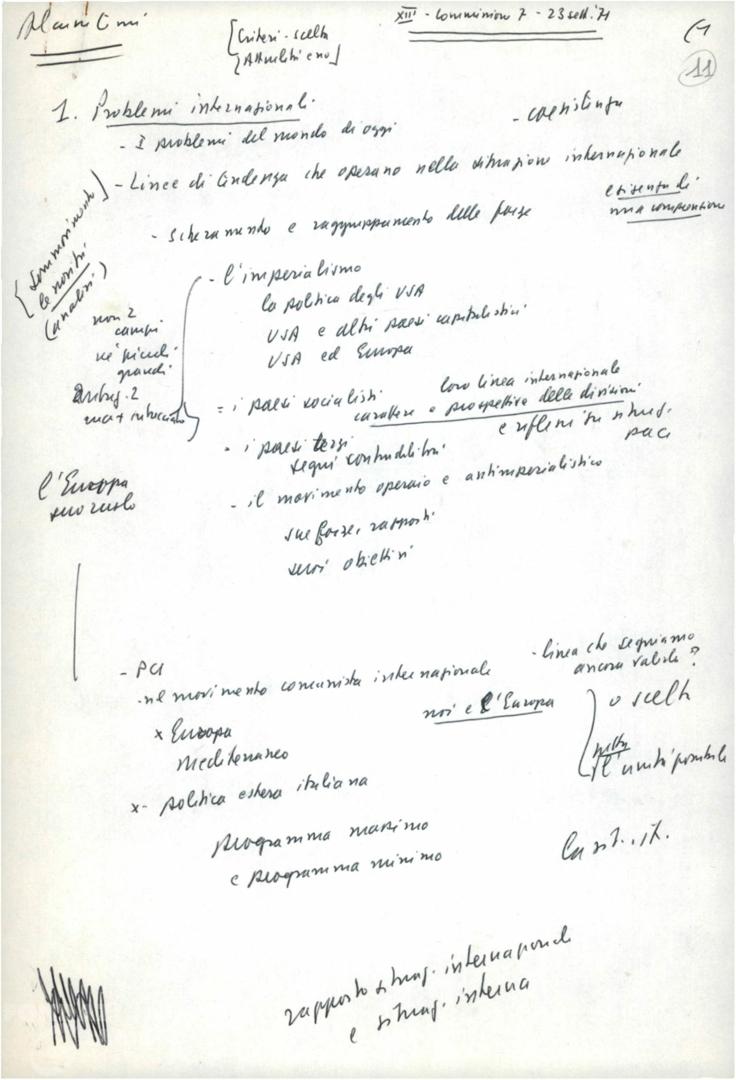 XIII - Commissione 7 - 23 sett. '71
[Criteri - scelta
11
1. Problemi internazionali
- I problemi del mondo di oggi
- coesistenza
- Linee di tendenza che operano nella situazione internazionale
- schieramento e raggruppamento delle forze
esigenza di
una
le novità
(analisi)
- l'imperialismo
la politica degli USA
USA e altri paesi capitalistici
USA ed Europa
non 2
campi
né piccoli
grandi
- i paesi socialisti
loro linea internazionale
carattere e prospettive delle divisioni
e riflessi su situaz.
paci
- i paesi terzi
segni contraddittori
- il movimento operaio e antimperialistico
sue forze, rapporti
suoi obiettivi
l'Europa
suo ruolo
- PCI
- nel movimento comunista internazionale
- linea che seguiamo
ancora valida?
noi e l'Europa
o scelta
x Europa
Mediterraneo
l'unità possibile
x- politica estera italiana
programma massimo
e programma minimo
La sit. it.
rapporto situaz. internazionale
e situaz. interna